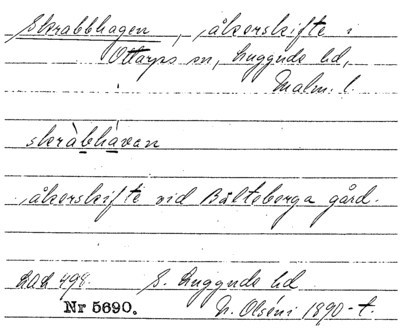 Skrabbhagen, åkerskifte i
Ottarps sn, Luggude hd,
Malm. l.
skràbhávan
åkerskifte vid Bälteberga gård.
LAL 498. S. Luggude hd
Nr 5690. N. Olséni 1890-t.